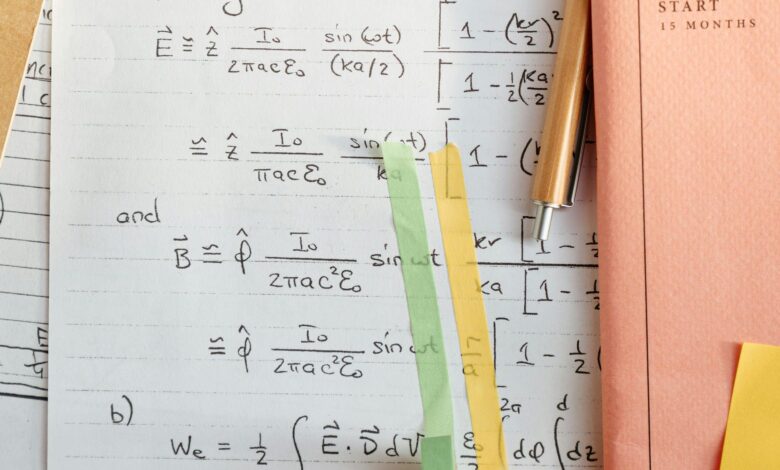 E⃗ ≅ ẑ I₀/(2πacε₀) sin(ωt)/(ka/2) [1 - (kr/2)²]/[1 - ½(ka/2
≅ ẑ I₀/(πacε₀) sin(ωt)/ka [1 - (
and
B⃗ ≅ φ̂ I₀/(2πac²ε₀) sin ωt kr[1 - ½/ka[1 - ½
≅ φ̂ I₀/(2πac²ε₀) sin ωt [1 - ½(
b)
2a d
We = ½ ∫ E⃗ · D⃗ dV ε₀/2 dφ ∫ dz
START
15 MONTHS